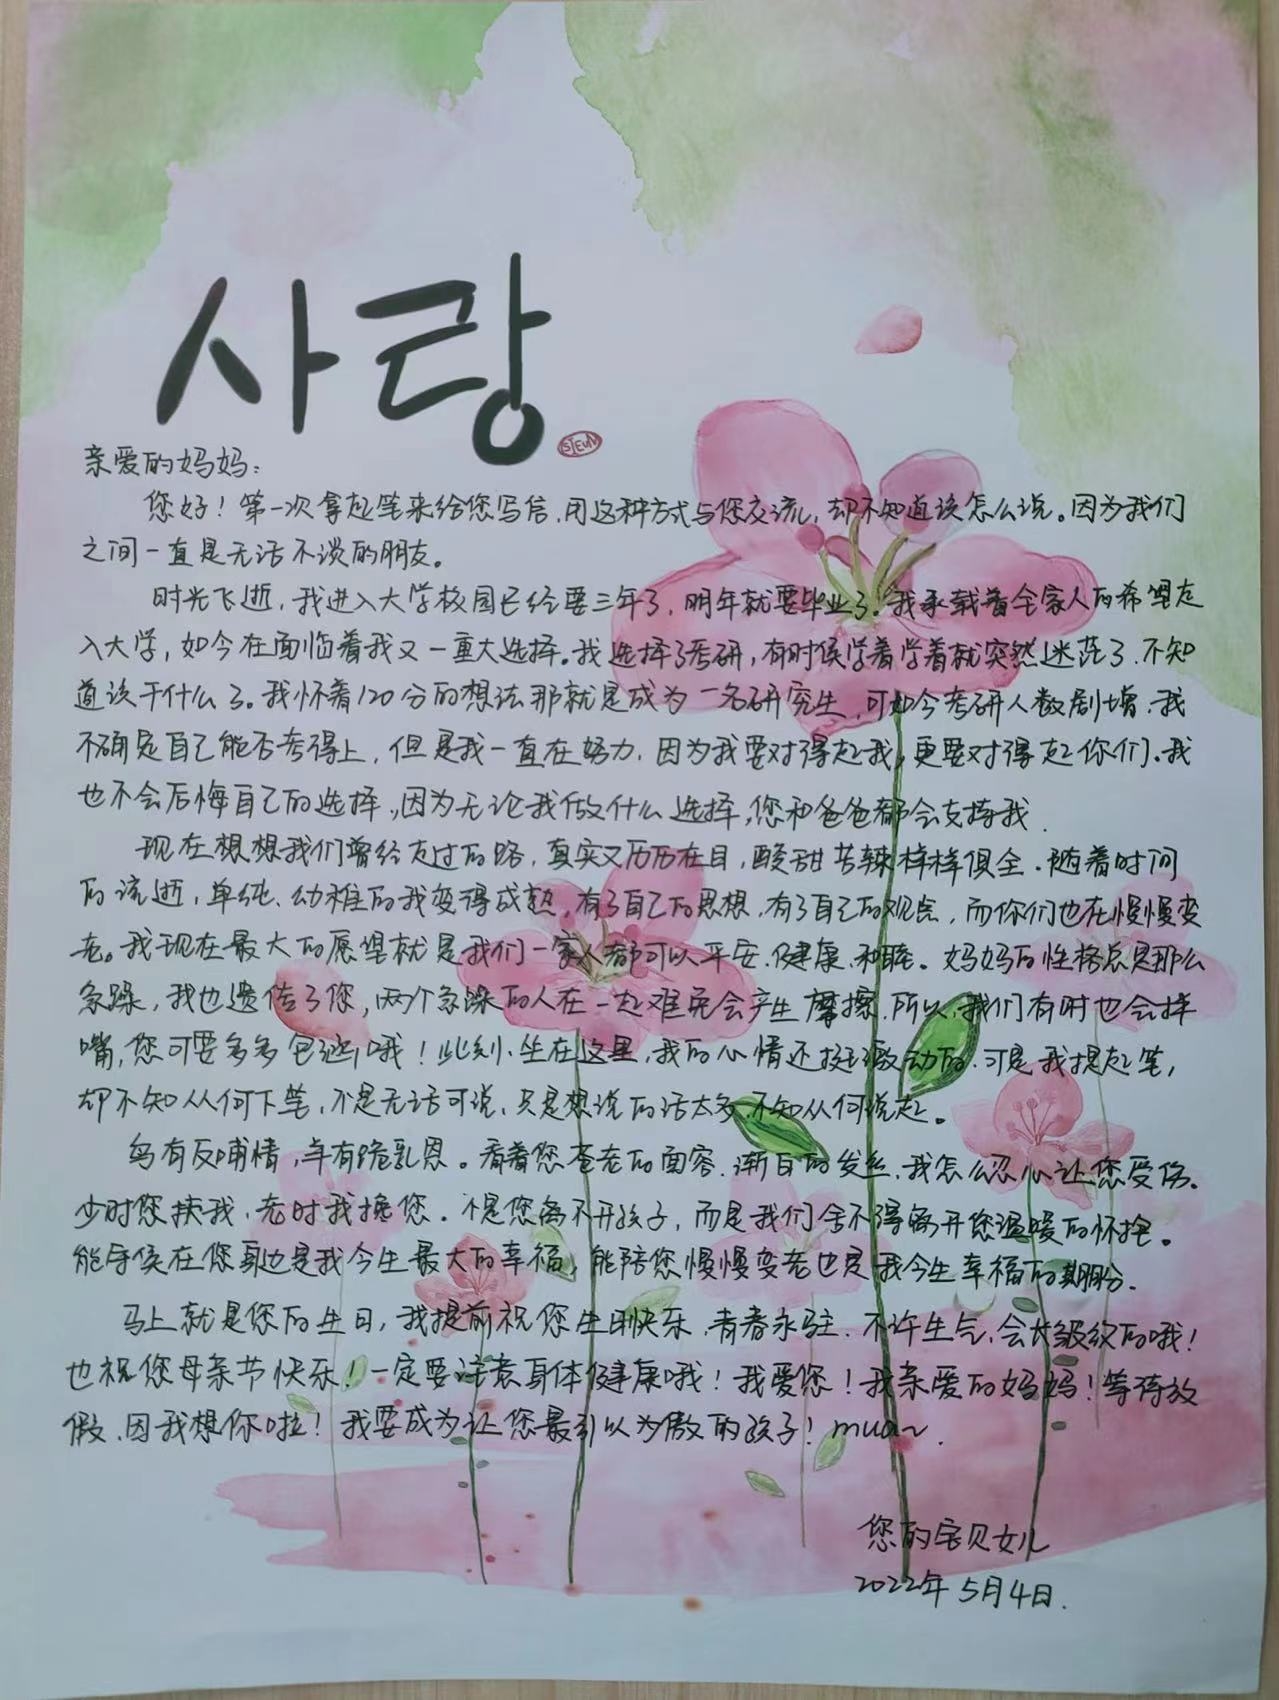 사랑
STEUN
亲爱的妈妈：
您好！第一次拿起笔来给您写信，用这种方式与您交流，却不知道该怎么说。因为我们
之间一直是无话不谈的朋友。
时光飞逝，我进入大学校园已经要三年了，明年就要毕业了。我承载着全家人的希望走
入大学，如今在面临着我又一重大选择。我选择了考研，有时候学着学着就突然迷茫了，不知
道该干什么了。我怀着120分的想法那就是成为一名研究生，可如今考研人数剧增，我
不确定自己能否考得上，但是我一直在努力，因为我要对得起我，更要对得起你们。我
也不会后悔自己的选择，因为无论我做什么选择，您和爸爸都会支持我．
现在想想我们曾经走过的路，真实又历历在目，酸甜苦辣样样俱全．随着时间
的流逝，单纯、幼稚的我变得成熟，有了自己的思想，有了自己的观点，而你们也在慢慢变
老。我现在最大的愿望就是我们一家人都可以平安、健康、和睦。妈妈的性格总是那么
急躁，我也遗传了您，两个急躁的人在一起难免会产生摩擦，所以，我们有时也会拌
嘴，您可要多多包涵哦！此刻，坐在这里，我的心情还挺激动的，可是我提起笔，
却不知从何下笔，不是无话可说，只是想说的话太多，不知从何说起。
鸟有反哺情，羊有跪乳恩。看着您苍老的面容，渐白的发丝，我怎么忍心让您受伤。
少时您扶我，老时我搀您．不是您离不开孩子，而是我们舍不得离开您温暖的怀抱。
能守候在您身边是我今生最大的幸福，能陪您慢慢变老也是我今生幸福的期盼．
马上就是您的生日，我提前祝您生日快乐，青春永驻．不许生气，会长皱纹的哦！
也祝您母亲节快乐！一定要注意身体健康哦！我爱您！我亲爱的妈妈！等待放
假，因我想你啦！我要成为让您最引以为傲的孩子！mua~．
您的宝贝女儿
2022年5月4日．